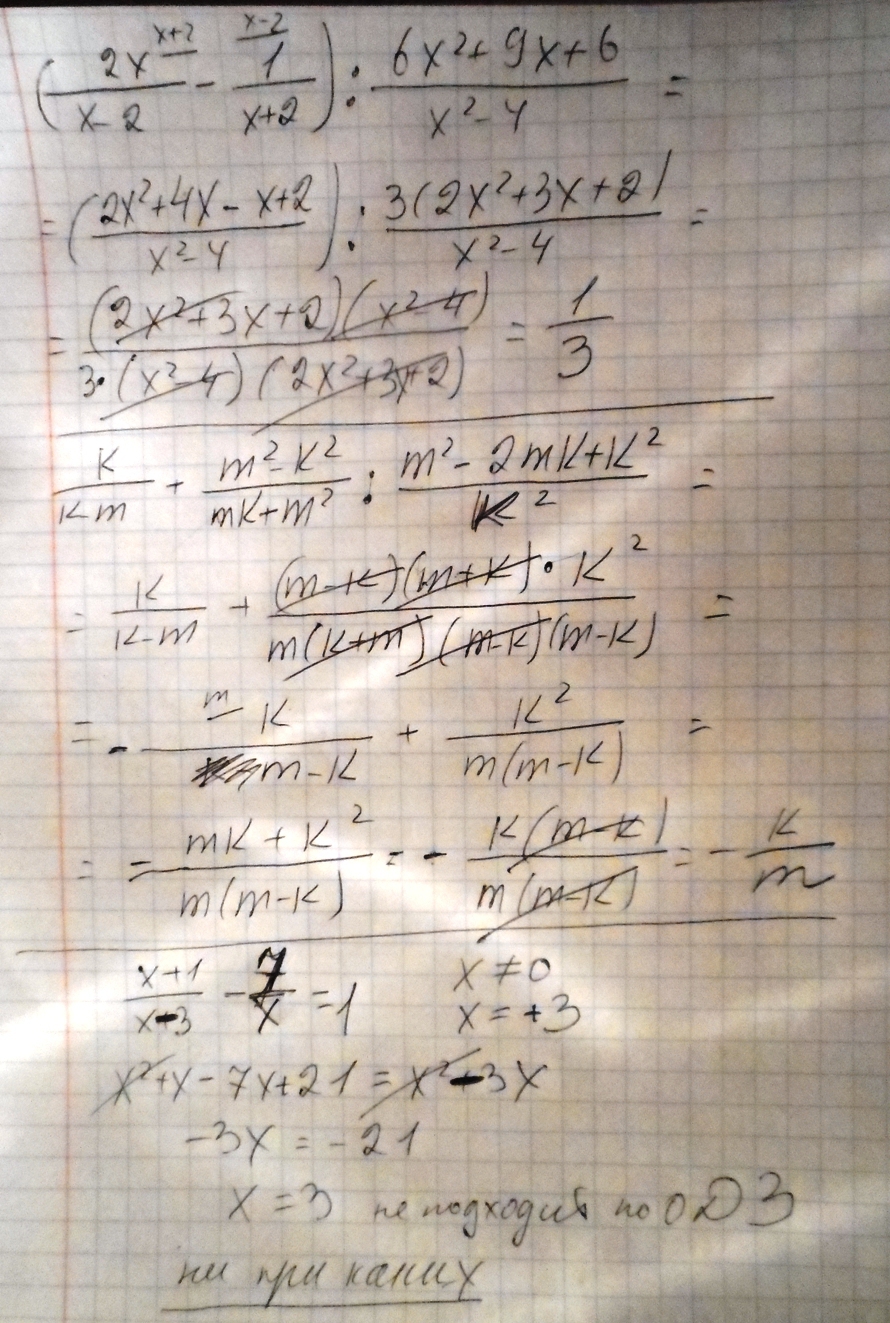 (2x^{x+2}/(x-2) - 1^{x-2}/(x+2)) : (6x²+9x+6)/(x²-4) =
= ((2x²+4x-x+2)/(x²-4)) : 3(2x²+3x+2)/(x²-4) =
= (2x²+3x+2)(x²-4)/(3·(x²-4)(2x²+3x+2)) = 1/3
k/(k m) + (m²-k²)/(mk+m²) : (m²-2mk+k²)/k² =
= k/(k-m) + (m-k)(m+k)·k²/(m(k+m)(m-k)(m-k)) =
= - k^{m}/(m-k) + k²/(m(m-k)) =
= = (mk+k²)/(m(m-k)) = - k(m-k)/(m(m-k)) = - k/m
(x+1)/(x-3) - 7/x = 1 x ≠ 0
x = +3
x²+x-7x+21 = x²-3x
-3x = -21
x = 3 не подходит по ОДЗ
ни при каких